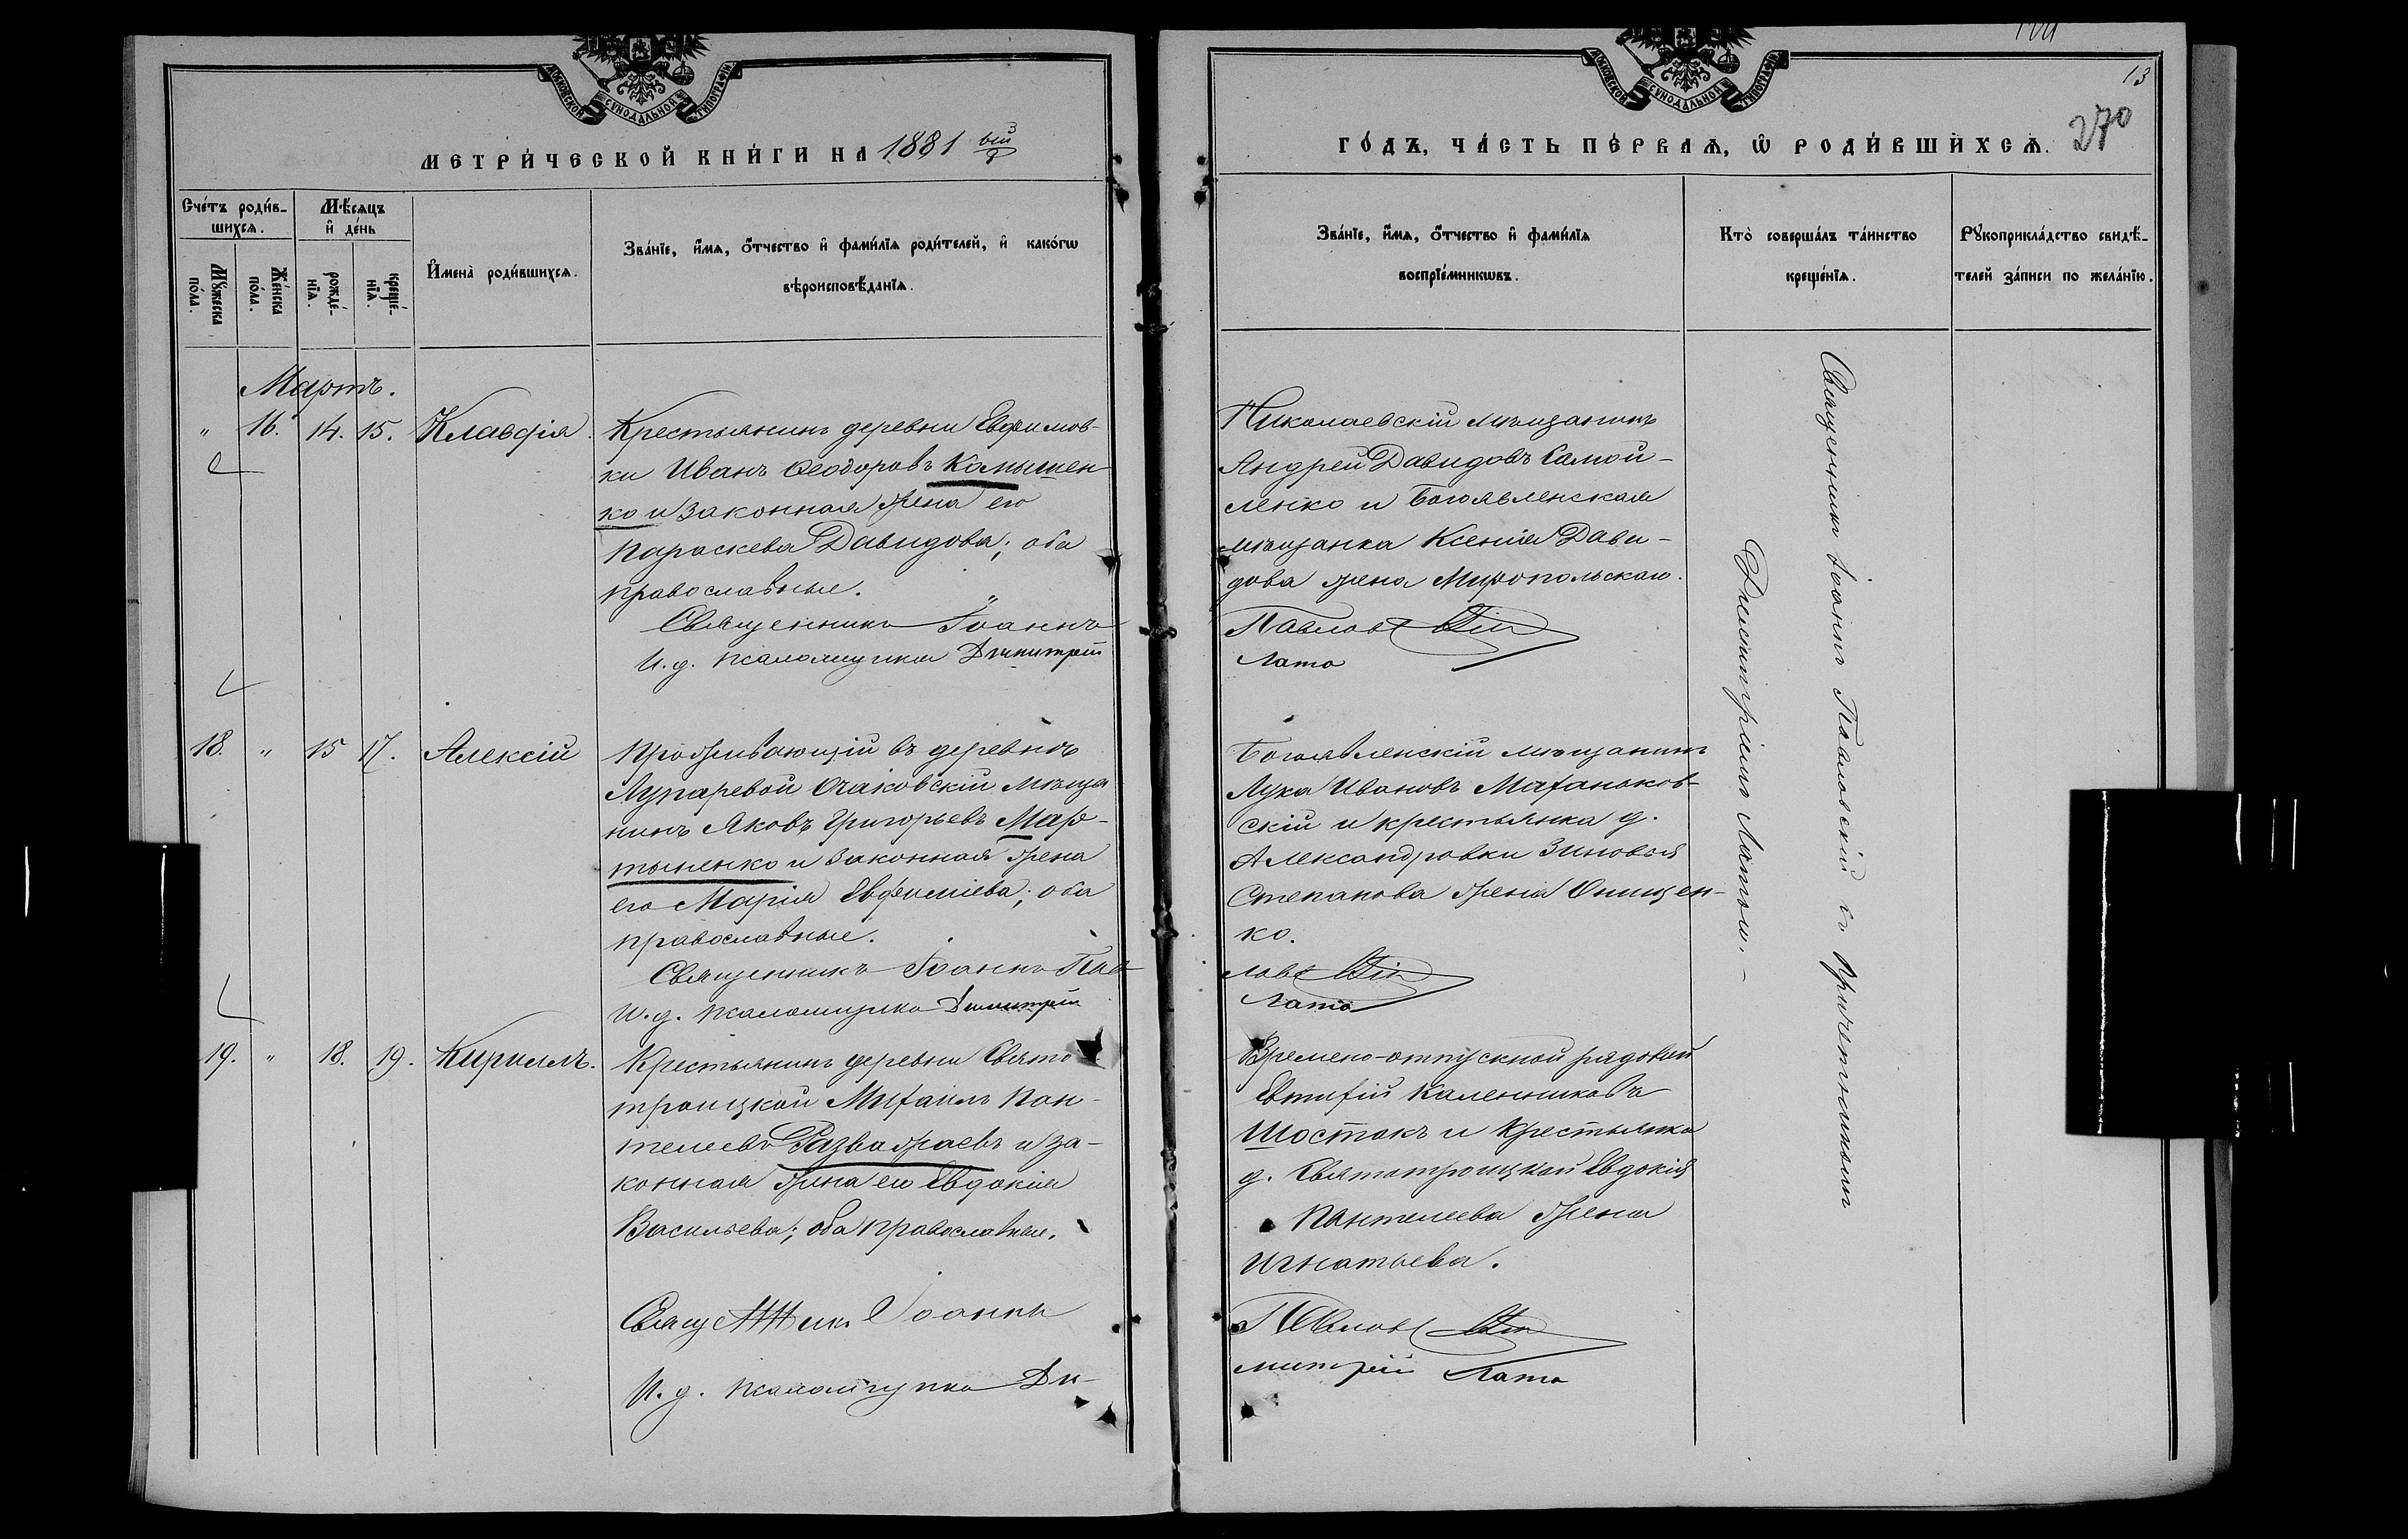 МОСКОВСКОЙ СѴНОДАЛЬНОЙ ТИПОГРАФІИ
МЕТРИ́ЧЕСКОЙ КНИ́ГИ НА 1881 ый
Сче́тъ роди́в-
шихсѧ.
Мѣ́сѧцъ
и҆ де́нь
Мꙋ́жеска
по́ла.
Же́нска
по́ла.
рожде́-
нїѧ.
креще́-
нїѧ.
И҆мена̀ роди́вшихсѧ.
Зва́нїе, и҆́мѧ, ѻ҆́тчество и҆ фами́лїѧ роди́телей, и҆ како́гѡ
вѣроисповѣ́данїѧ.
Мартъ.
" 16. 14. 15. Клавдія.
Крестьянинъ деревни Ефимов-
ки Иванъ Ѳеодоровъ Камышен-
ко и законная жена его
Параскева Давидова; оба
православные.
Священникъ Іоаннъ
И. д. псаломщика Димитрій
18. " 15 17. Алексій
Проживающій въ деревнѣ
Лупаревой Очаковскій мѣща
нинъ Яковъ Григорьевъ Мар-
тыненко и законная жена
его Марія Евфиміева; оба
православные.
Священникъ Іоаннъ Пав
И. д. псаломщика Димитрій
19. " 18. 19. Кириллъ.
Крестьянинъ деревни Свято
троицкой Михаилъ Пан-
телеевъ Разважаевъ и за-
конная жена его Евдокія
Васильева; оба православные.
Священникъ Іоаннъ
И. д. псаломщика Ди-
МОСКОВСКОЙ СѴНОДАЛЬНОЙ ТИПОГРАФІИ
13
270
ГО́ДЪ, ЧА́СТЬ ПЕ́РВАѦ, Ѡ҆ РОДИ́ВШИХСѦ.
Зва́нїе, и҆́мѧ, ѻ҆́тчество и҆ фами́лїѧ
воспрїе́мникѡвъ.
Кто̀ соверша́лъ та́инство
креще́нїѧ.
Рꙋкоприкла́дство свидѣ́-
телей за́писи по жела́нїю.
Николаевскій мѣщанинъ
Андрей Давидовъ Самой-
ленко и Богоявленская
мѣщанка Ксенія Дави-
дова жена Миропольскаго.
Павловскій
Лата
Богоявленскій мѣщанинъ
Лука Ивановъ Маханьков-
скій и крестьянка д.
Александровки Зиновія
Степанова жена Онищен-
ко.
ловскій
Лата
Времено-отпускной рядовой
Евтихій Каленниковъ
Шостакъ и крестьянка
д. Святотроицкой Евдокія
Пантелеева жена
Игнатьева.
Павловскій
митрій Лата
Священникъ Іоаннъ Павловскій съ причетникомъ
Димитріемъ Латою. -